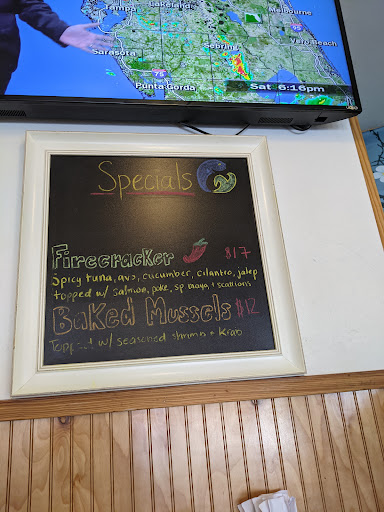 Lakeland
Melbourne
Tampa
Sarasota
Sebring
Vero Beach
75
Punta Gorda
75
Sat 6:16pm
VIZIO
Specials
Firecracker $17
Spicy tuna, avo, cucumber, cilantro, jalep
topped w/ salmon, poke, sp mayo, + scallions
Baked Mussels $12
Topped w/ seasoned shrimp + Krab